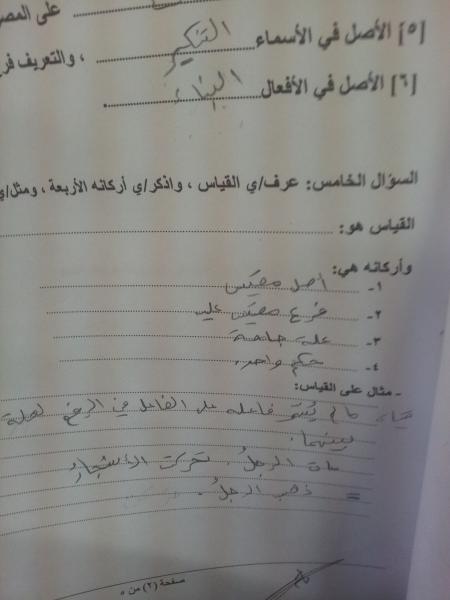 على المصد
[٥] الأصل في الأسماء التنكير ، والتعريف فرع
[٦] الأصل في الأفعال البناء.
السؤال الخامس: عرف/ي القياس ، واذكر/ي أركانه الأربعة ، ومثل/ي
القياس هو:
وأركانه هي:
١- أصل مقيس
٢- فرع مقيس عليه
٣- علة جامعة
٤- حكم واحد.
- مثال على القياس:
ما لم يُسَمَّ فاعله على الفاعل في الرفع لعلة
بينهما.
مات الرجلُ. تحركت الأشجارُ
= ذهب الرجلُ.
صفحة (٢) من ٥